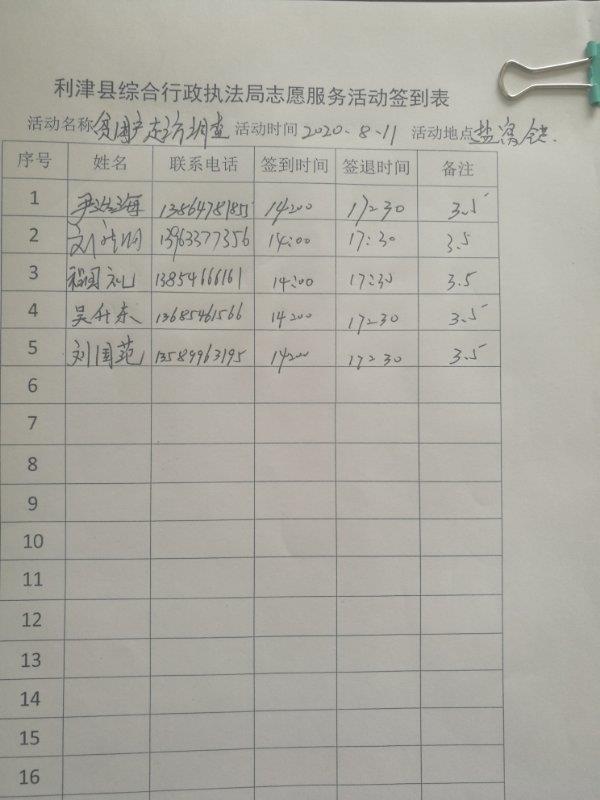 利津县综合行政执法局志愿服务活动签到表
活动名称 贫困户走访调查 活动时间 2020-8-11 活动地点 盐窝镇
序号 姓名 联系电话 签到时间 签退时间 备注
1 海 13864787855 14:00 17:30 3.5
2 刘 13963377356 14:00 17:30 3.5
3 国礼 13854666161 14:00 17:30 3.5
4 吴升东 13685461566 14:00 17:30 3.5
5 刘国范 13589963195 14:00 17:30 3.5
6
7
8
9
10
11
12
13
14
15
16